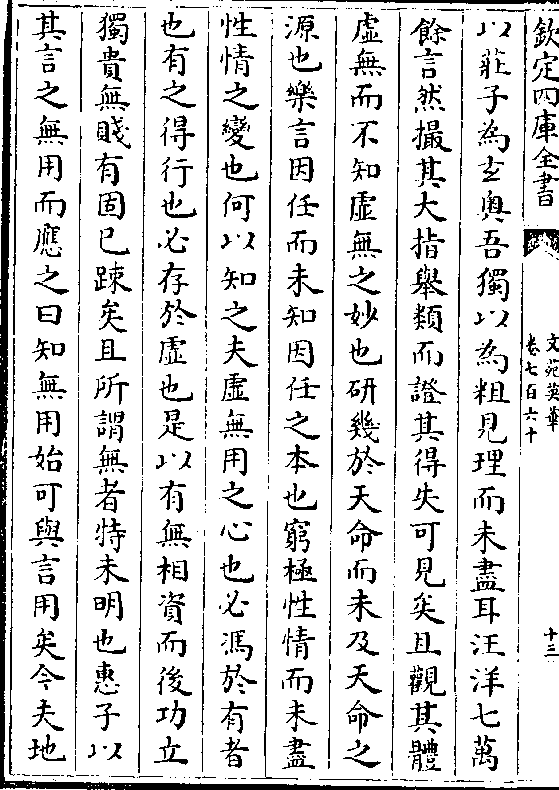 欽定四庫全書
文苑英華
卷七百六十
十三
以莊子為玄奥吾獨以為粗見理而未盡耳汪洋七萬
餘言然撮其大指舉類而證其得失可見矣且觀其體
虛無而不知虛無之妙也研幾於天命而未及天命之
源也樂言因任而未知因任之本也窮極性情而未盡
性情之變也何以知之夫虛無用之心也必馮於有者
也有之得行也必存於虛也是以有無相資而後功立
獨貴無賤有固已踈矣且所謂無者特未明也惠子以
其言之無用而應之曰知無用始可與言用矣今夫地